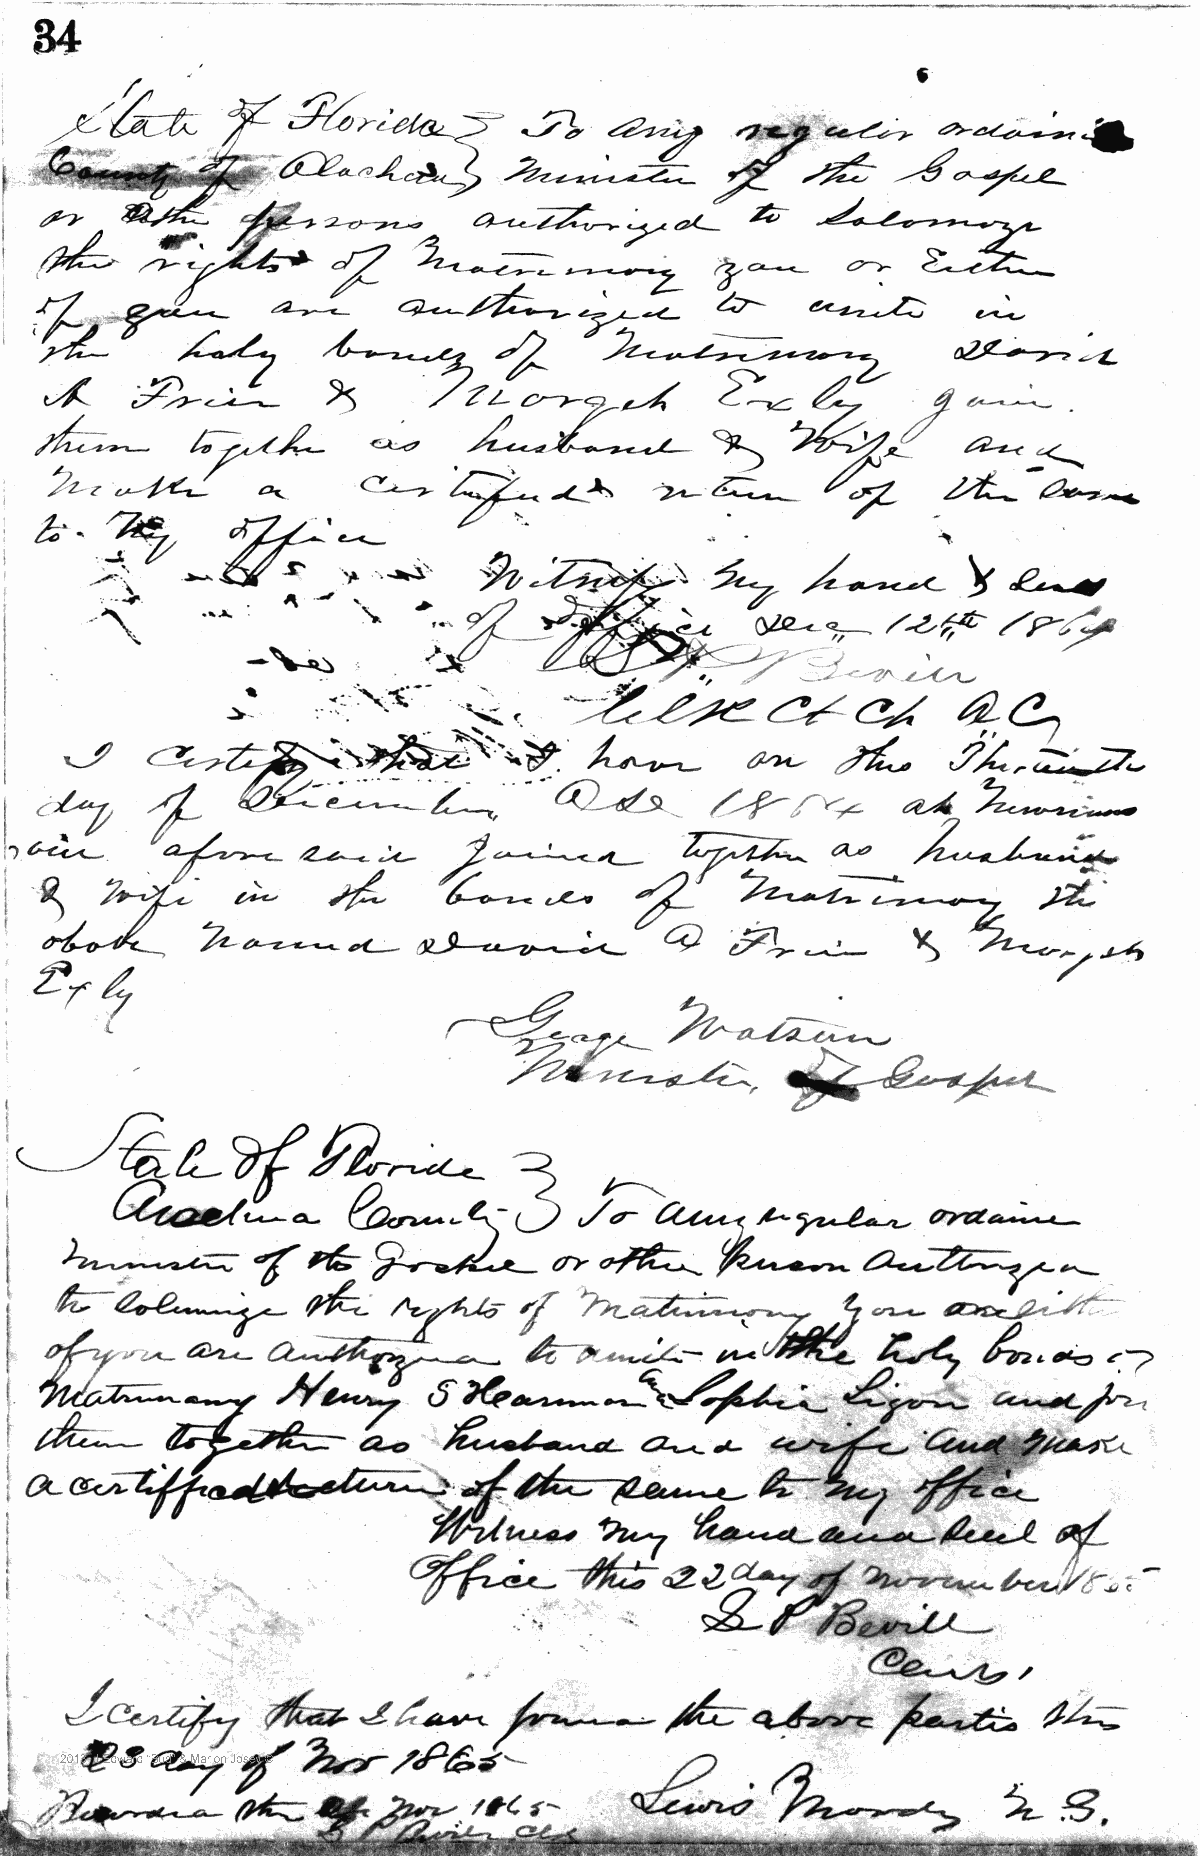 34
State of Florida } To any regular ordained
County of Alachua } Minister of the Gospel
or other persons authorized to Solomoze
the rights of Matrimony you or Either
of you are authorized to unite in
the holy bonds of Matrimony David
A Frier & Morgeh Exly join
them together as husband & Wife and
Make a certified return of the same
to my office
Witness My hand & Seal
of office Dec 12th 1864
S P Bevill
Clk Ct Ch A C
I certify that I have on this Thirteenth
day of December A D 1864 at
aforesaid joined together as husband
& wife in the bonds of Matrimony the
above named David A Frier & Morgeh
Exly
George Watson
Minister of Gospel
State of Florida }
Alachua County } To any regular ordained
minister of the Gospel or other person authorized
to Solemnize the rights of Matrimony You or either
of you are authorized to unite in the holy bonds of
Matrimony Henry S Hearman and Sophia Ligon and join
them together as husband and wife and Make
a certified return of the same to my office
Witness my hand and Seal of
office this 22 day of November 1865
S P Bevill
Clerk
I certify that I have joined the above parties this
23 day of Nov 1865
Lewis Moody M G.
Recorded the Nov 1865
S P Bevill Clk